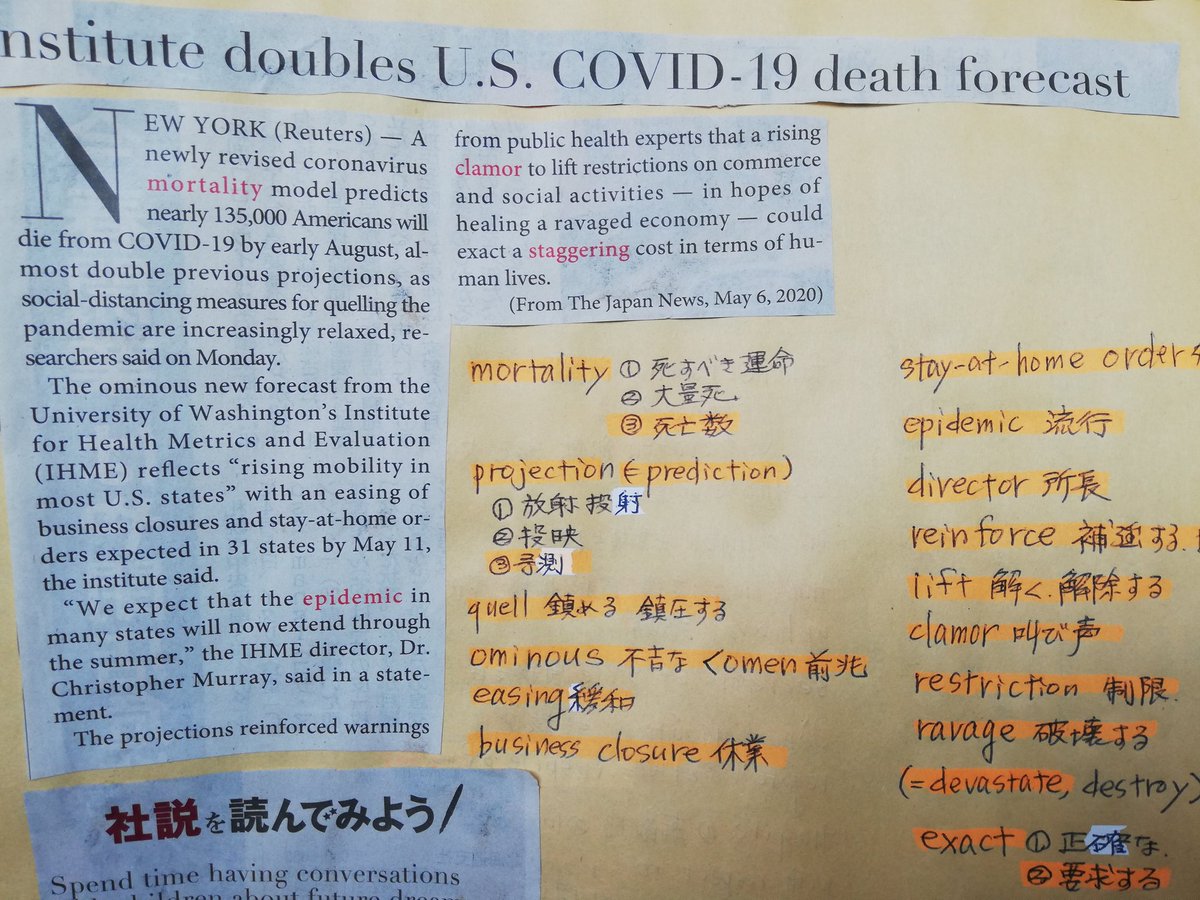 nstitute doubles U.S. COVID-19 death forecast
NEW YORK (Reuters) — A
newly revised coronavirus
mortality model predicts
nearly 135,000 Americans will
die from COVID-19 by early August, al-
most double previous projections, as
social-distancing measures for quelling the
pandemic are increasingly relaxed, re-
searchers said on Monday.
The ominous new forecast from the
University of Washington's Institute
for Health Metrics and Evaluation
(IHME) reflects “rising mobility in
most U.S. states” with an easing of
business closures and stay-at-home or-
ders expected in 31 states by May 11,
the institute said.
“We expect that the epidemic in
many states will now extend through
the summer,” the IHME director, Dr.
Christopher Murray, said in a state-
ment.
The projections reinforced warnings
from public health experts that a rising
clamor to lift restrictions on commerce
and social activities — in hopes of
healing a ravaged economy — could
exact a staggering cost in terms of hu-
man lives.
(From The Japan News, May 6, 2020)
mortality ① 死すべき運命
② 大量死
③ 死亡数
projection (=prediction)
① 放射 投射
② 投映
③ 予測
quell 鎮める 鎮圧する
ominous 不吉な <omen 前兆
easing 緩和
business closure 休業
stay-at-home order
epidemic 流行
director 所長
reinforce 補強する.
lift 解く. 解除する
clamor 叫び声
restriction 制限.
ravage 破壊する
(=devastate, destroy)
exact ① 正確な.
② 要求する
社説を読んでみよう!
Spend time having conversations
children about future